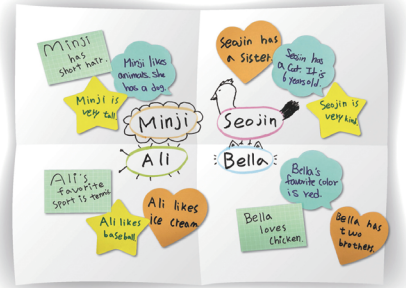 Minji
has
short hair.
Minji likes
animals. she
has a dog.
Minji is
very tall.
Minji
Seojin has
a sister.
Seojin has
a cat. It is
6 years old.
Seojin is
very kind.
Seojin
Ali
Ali's
favorite
sport is tennis.
Ali likes
baseball.
Ali likes
ice cream.
Bella
Bella's
favorite color
is red.
Bella
loves
chicken.
Bella has
two
brothers.